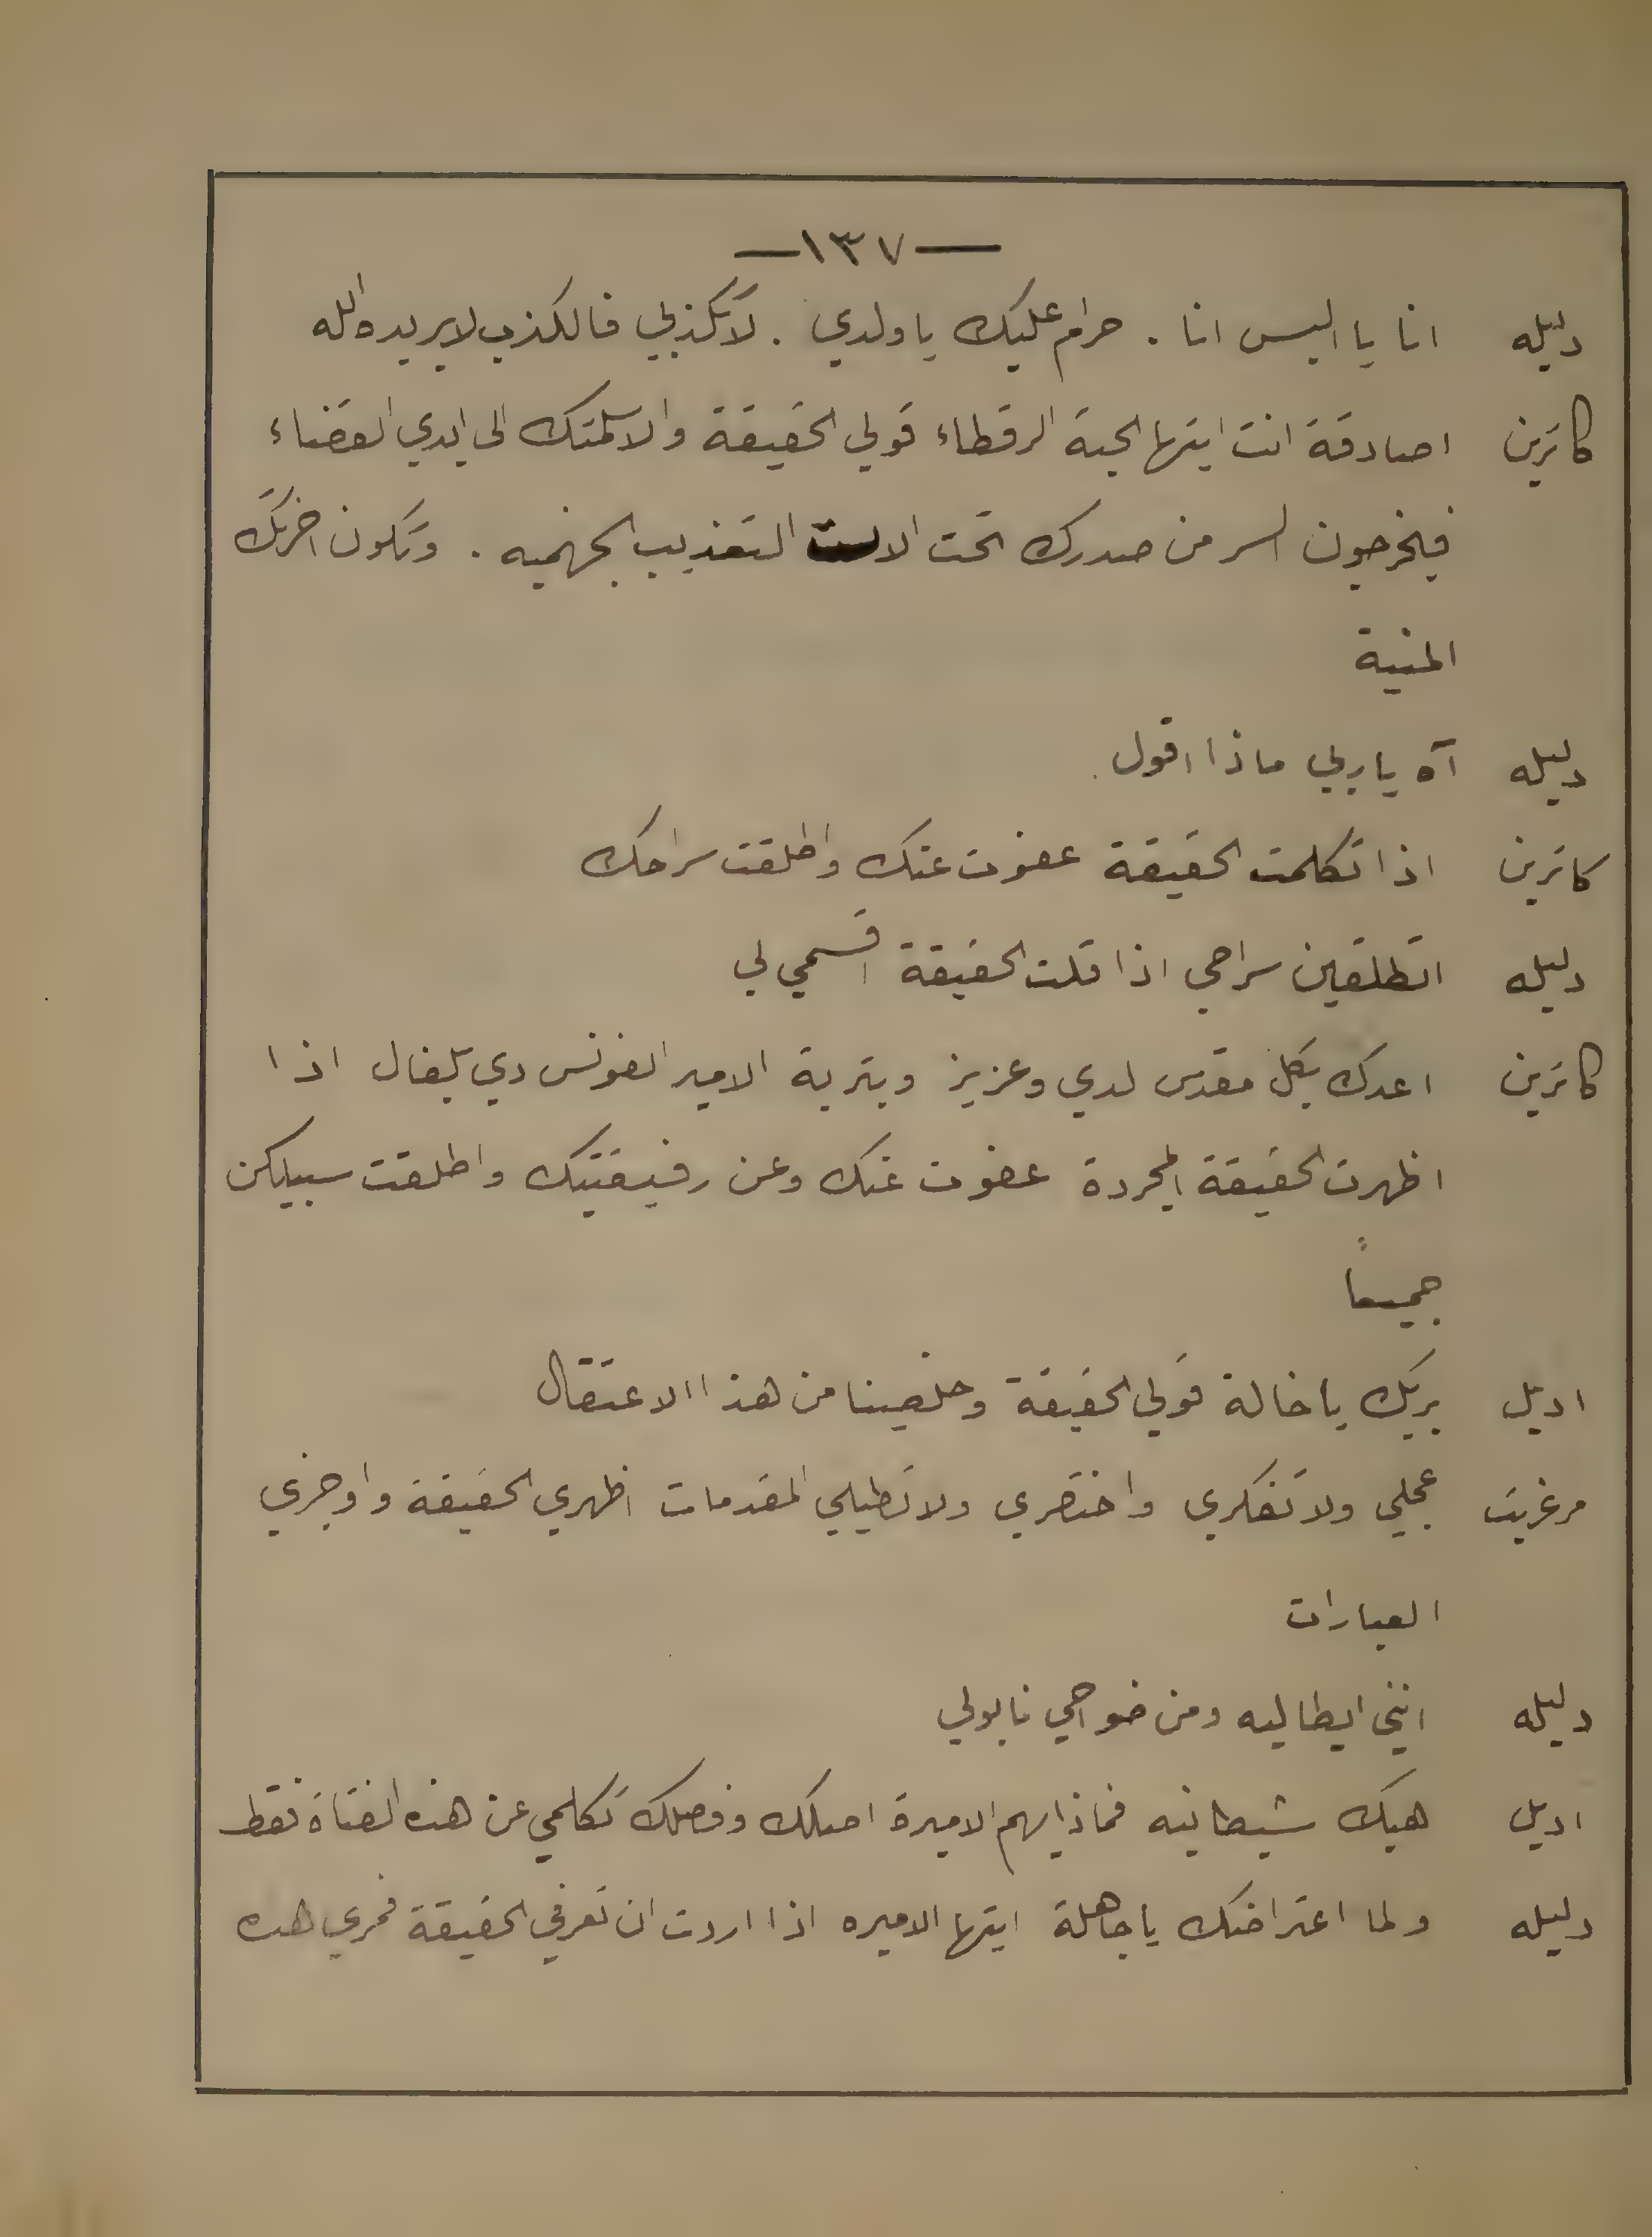 —١٣٧—
دليله انا يا اليس انا . حرام عليك يا ولدي . لا تكذبي فالكذب لا يريده الله
كاترين اصادقة انت ايتها الحية الرقطاء قولي الحقيقة والا سلمتك الى ايدي القضاء
فيخرجون السر من صدرك تحت الات التعذيب الجهنميه . وتكون اخرتك
المنية
دليله آه يا ربي ماذا اقول .
كاترين اذا تكلمت الحقيقة عفوت عنك واطلقت سراحك
دليله اتطلقين سراحي اذا قلت الحقيقة اقسمي لي
كاترين اعدك بكل مقدس لدي وعزيز وبتربة الامير الفونس دي بلفال اذا
اظهرت الحقيقة المجردة عفوت عنك وعن رفيقتيك واطلقت سبيلكن
جميعاً
اديل بربك يا خالة قولي الحقيقة وخلصينا من هذا الاعتقال
مرغريت عجلي ولا تفكري واختصري ولا تطيلي المقدمات اظهري الحقيقة واوجزي
العبارات
دليله انني ايطاليه ومن ضواحي نابولي
اديل هيك شيطانيه فماذا يهم الاميرة اصلك وفصلك تكلمي عن هذه الفتاة فقط
دليله ولما اعتراضك يا جاهلة ايتها الاميره اذا اردت ان تعرفي الحقيقة فمري هذه